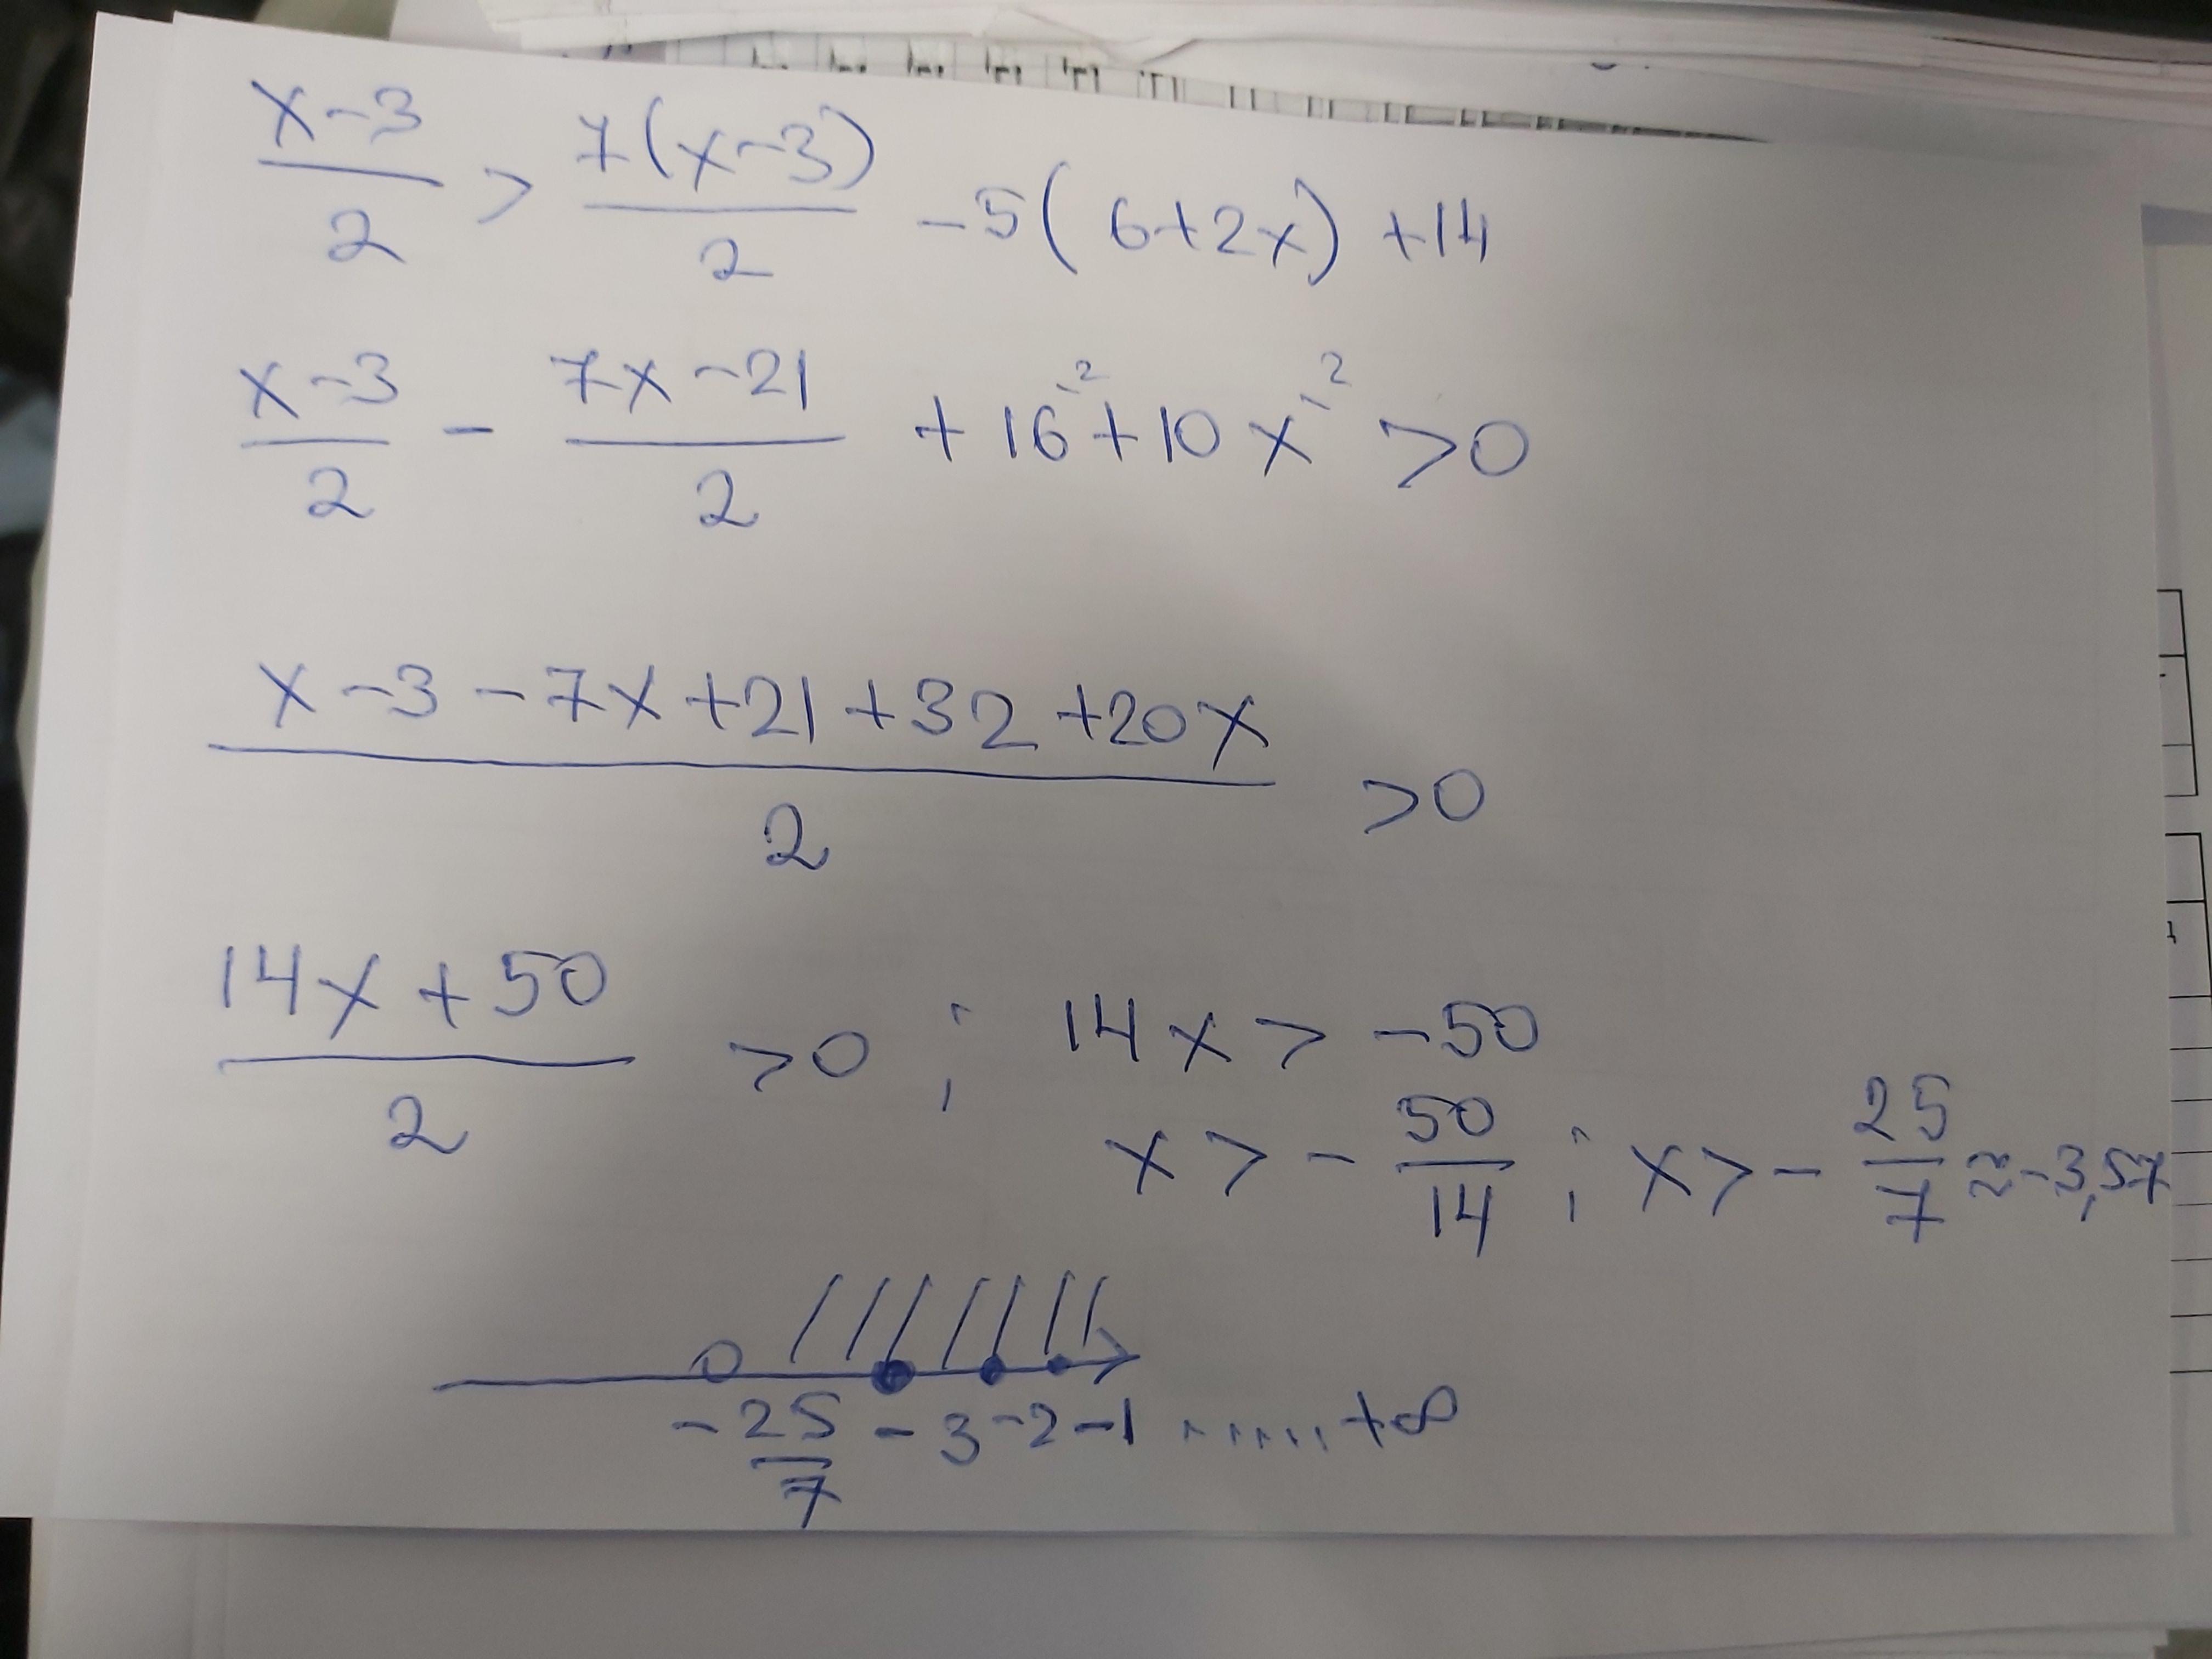 x-3/2 > 7(x-3)/2 -5(6+2x) +14
x-3/2 - 7x-21/2 + 16^2 + 10x^2 >0
x-3-7x+21+32+20x/2 >0
14x+50/2 >0 ; 14x > -50
x > - 50/14 ; x > - 25/7 ≈ -3,57
-25/7 -3 -2 -1 ...... +∞